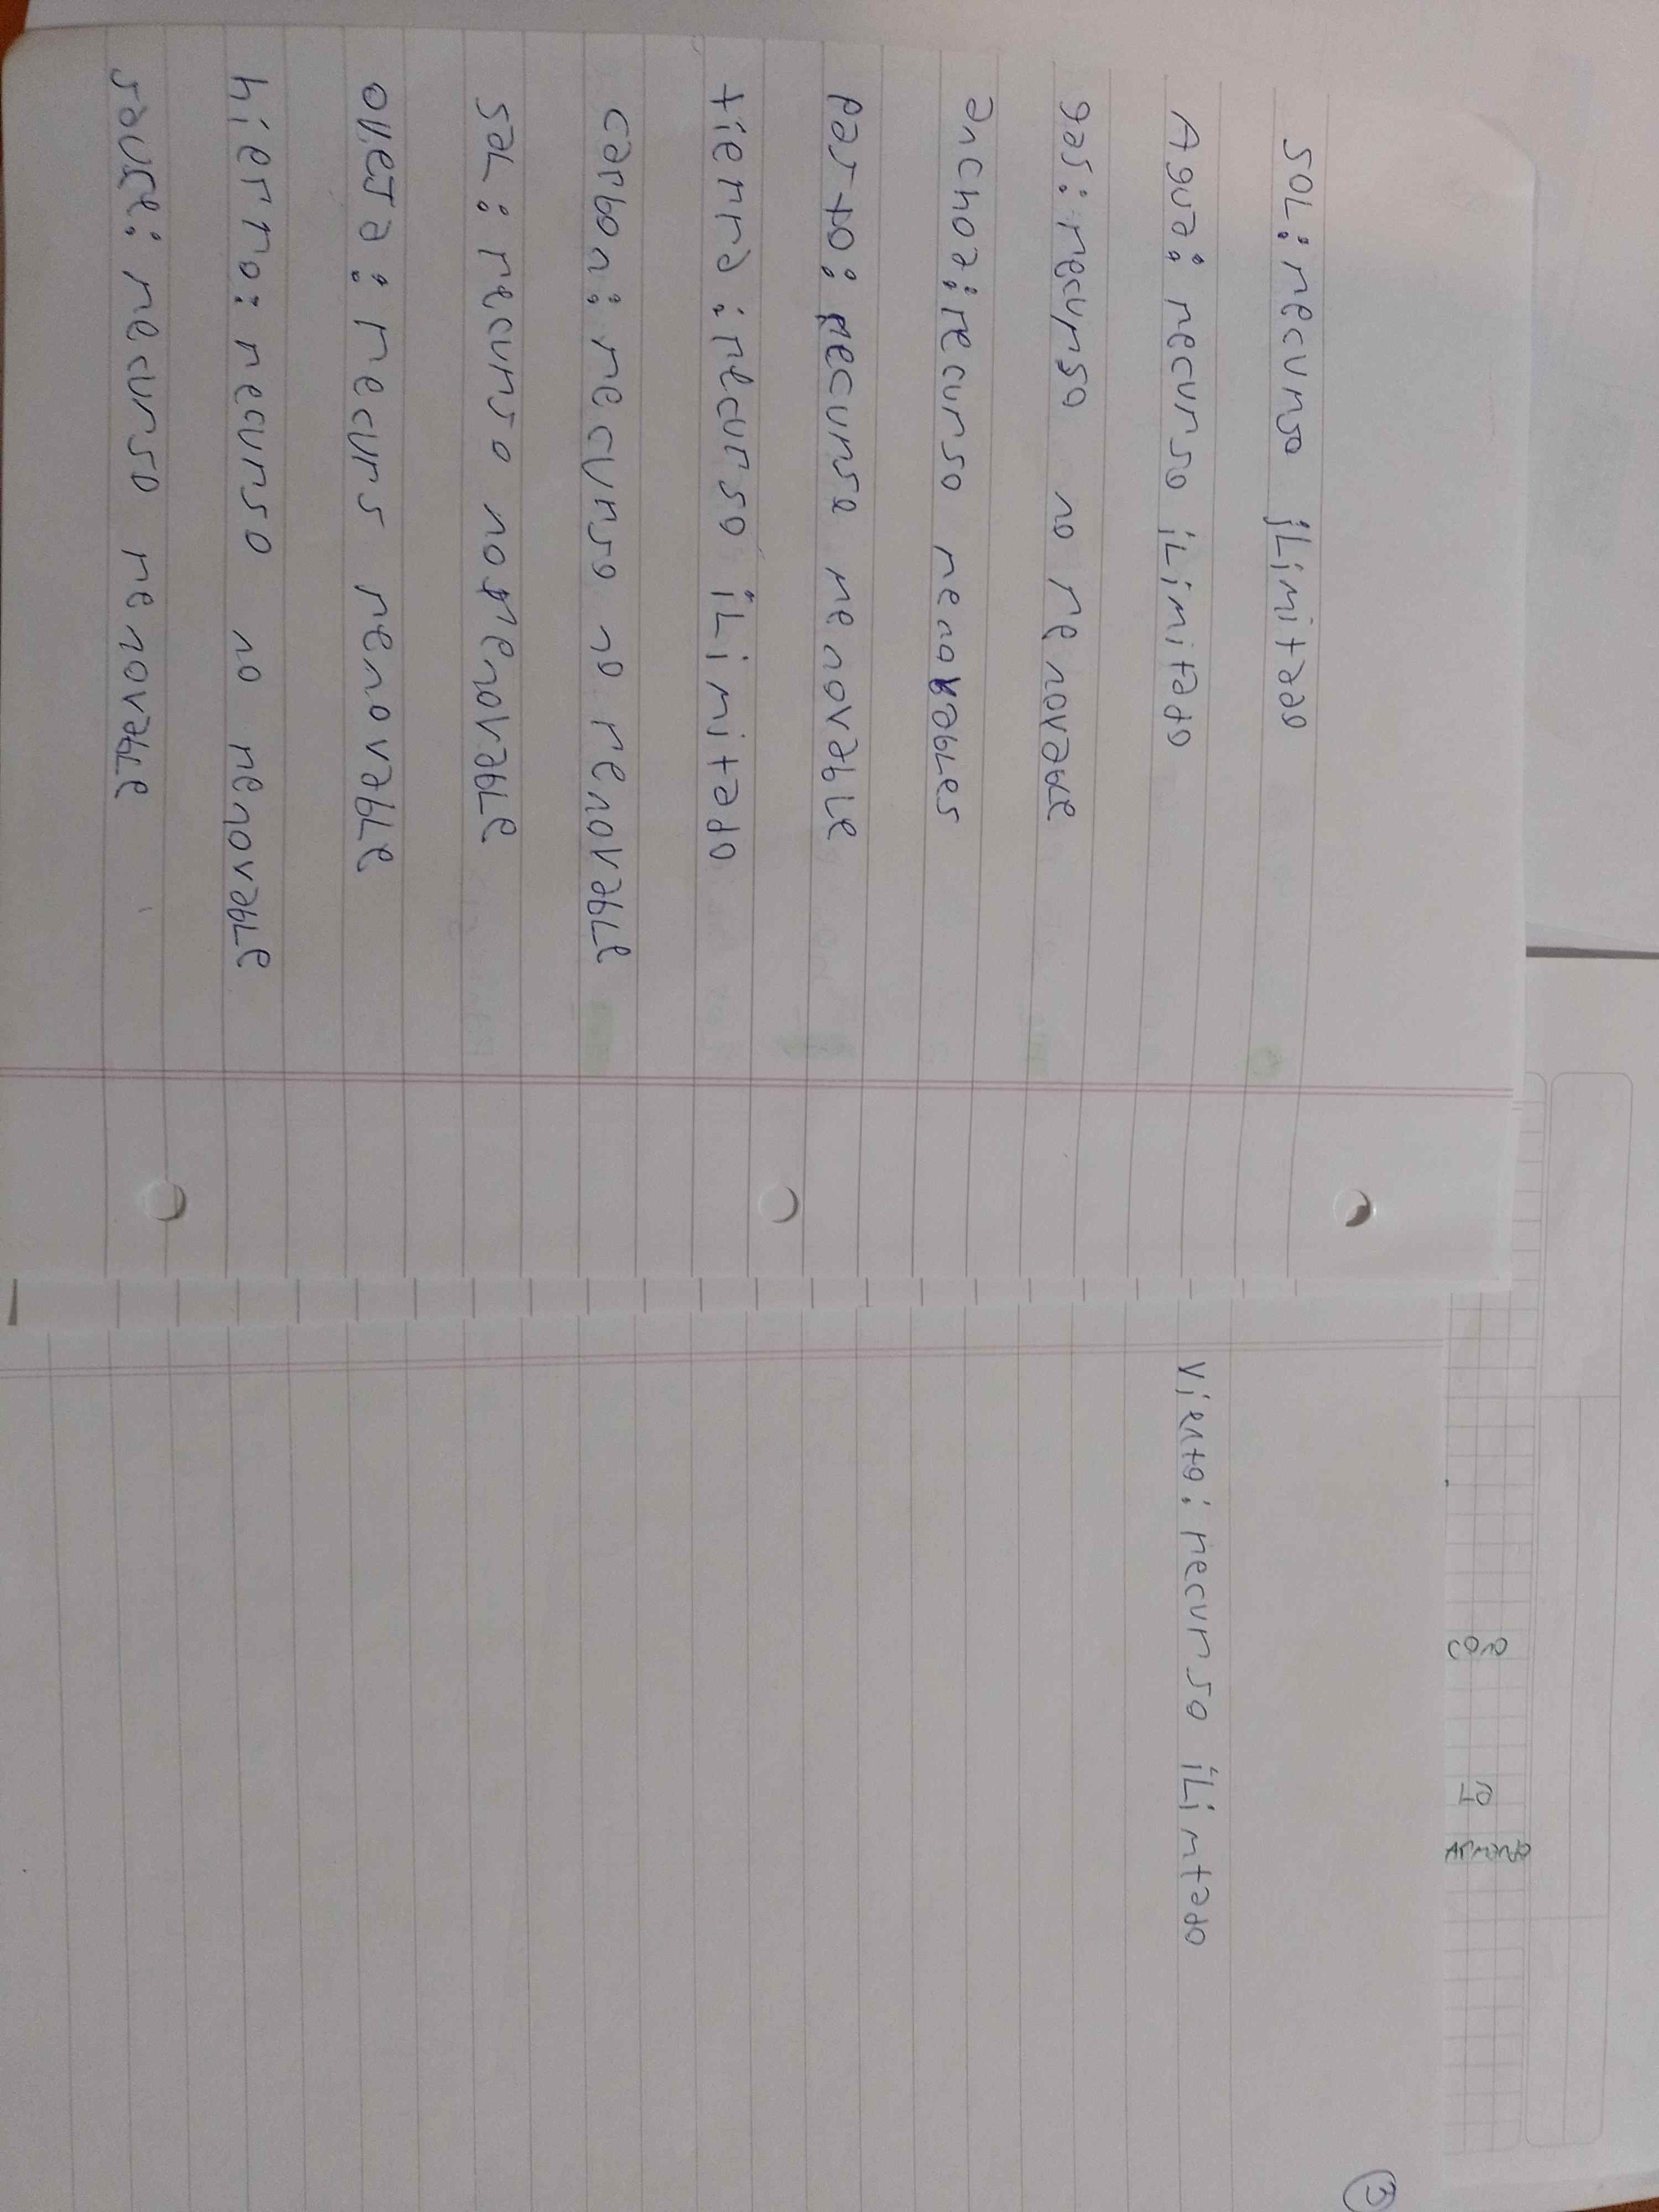 SOL: recurso iLimitado
Agua: recurso iLimitado
gas: recurso no renovable
anchoa: recurso renovables
pasto: recurso renovable
tierra: recurso iLimitado
carbon: recurso no renovable
saL: recurso no renovabLe
oveJa: recurs renovabLe
hierro: recurso no renovabLe
sause: recurso renovabLe
viento: recurso iLimtado
3